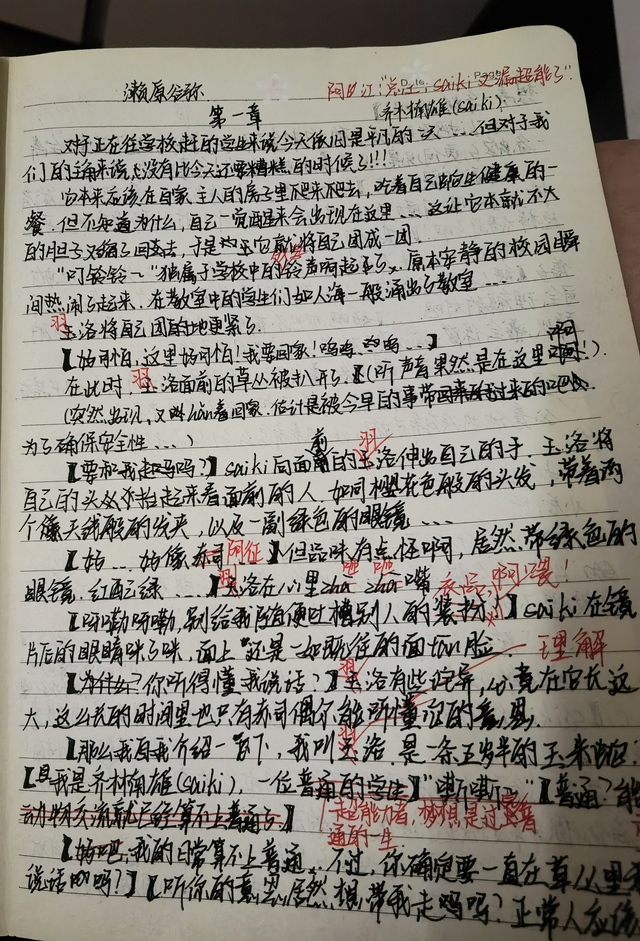 濑原合称
第一章
齐木楠雄(saiki)
对于正在往学校赶的学生来说今天依旧是平凡的一天……但对于我
们的主角来说,没有比今天还要糟糕的时候了!!!
它本来应该在自家主人的房子里爬来爬去,吃着自己的生健康的一
餐.但不知道为什么,自己一觉醒来会出现在这里……这让它本就不大
的胆子又缩了回去,于是它就将自己团成一团.
"叮铃铃~"独属于学校中的铃声响起了.原本安静的校园瞬
间热闹了起来.在教室中的学生们如人海一般涌出了教室……
羽
玉洛将自己团的地更紧了.
【好可怕,这里好可怕!我要回家!呜呜呜呜……】
在此时,羽洛面前的草丛被扒开了.(听声音果然是在这里啊!)
(突然出现,又叫着回家.估计是被今早的事带过来的吧
为了确保安全性……)
【要和我走吗?】saiki向面前的羽洛伸出自己的手.玉洛将
自己的头从抬起来看面前的人.如同樱花色般的头发,带着两
个像天线般的发夹,以及一副绿色的眼镜……
【好……好像赤司 阿征】但品味有点怪啊,居然带绿色的
眼镜.红配绿……】玉洛在心里zha zha嘴
【呀嘞呀嘞,别给我随便吐槽别人的装扮】saiki在镜
片后的眼睛眯了眯,面上还是一如既往的面切脸.
理解
【为什么?你听得懂我说话?】羽洛有些诧异,必竟在它长这
大,这么长的时间里也只有赤司偶尔能听懂它的意思.
【那么我自我介绍一下,我叫玉洛,是一条五岁半的玉米蛇:
【我是齐木楠雄(saiki),一位普通的学生】"嘶嘶~"【普通?能
动物交流就已经算不上普通了】
超能力者,梦想是过普普
通通的一生
【好吧,我的日常算不上普通.不过,你确定要一直在草丛里
说话吗?】【听你的意思,居然想带我走吗?正常人应该